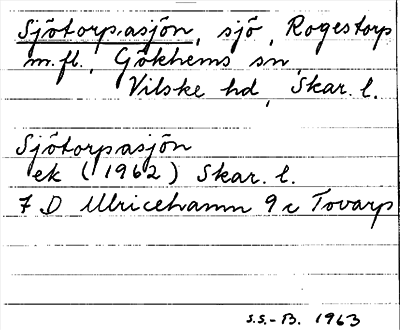 Sjötorpasjön, sjö, Rogestorp
m.fl., Gökhems sn,
Vilske hd, Skar. l.
Sjötorpasjön
ek (1962) Skar. l.
7 D Ulricehamn 9 c Tovarp
S.S.-B. 1963